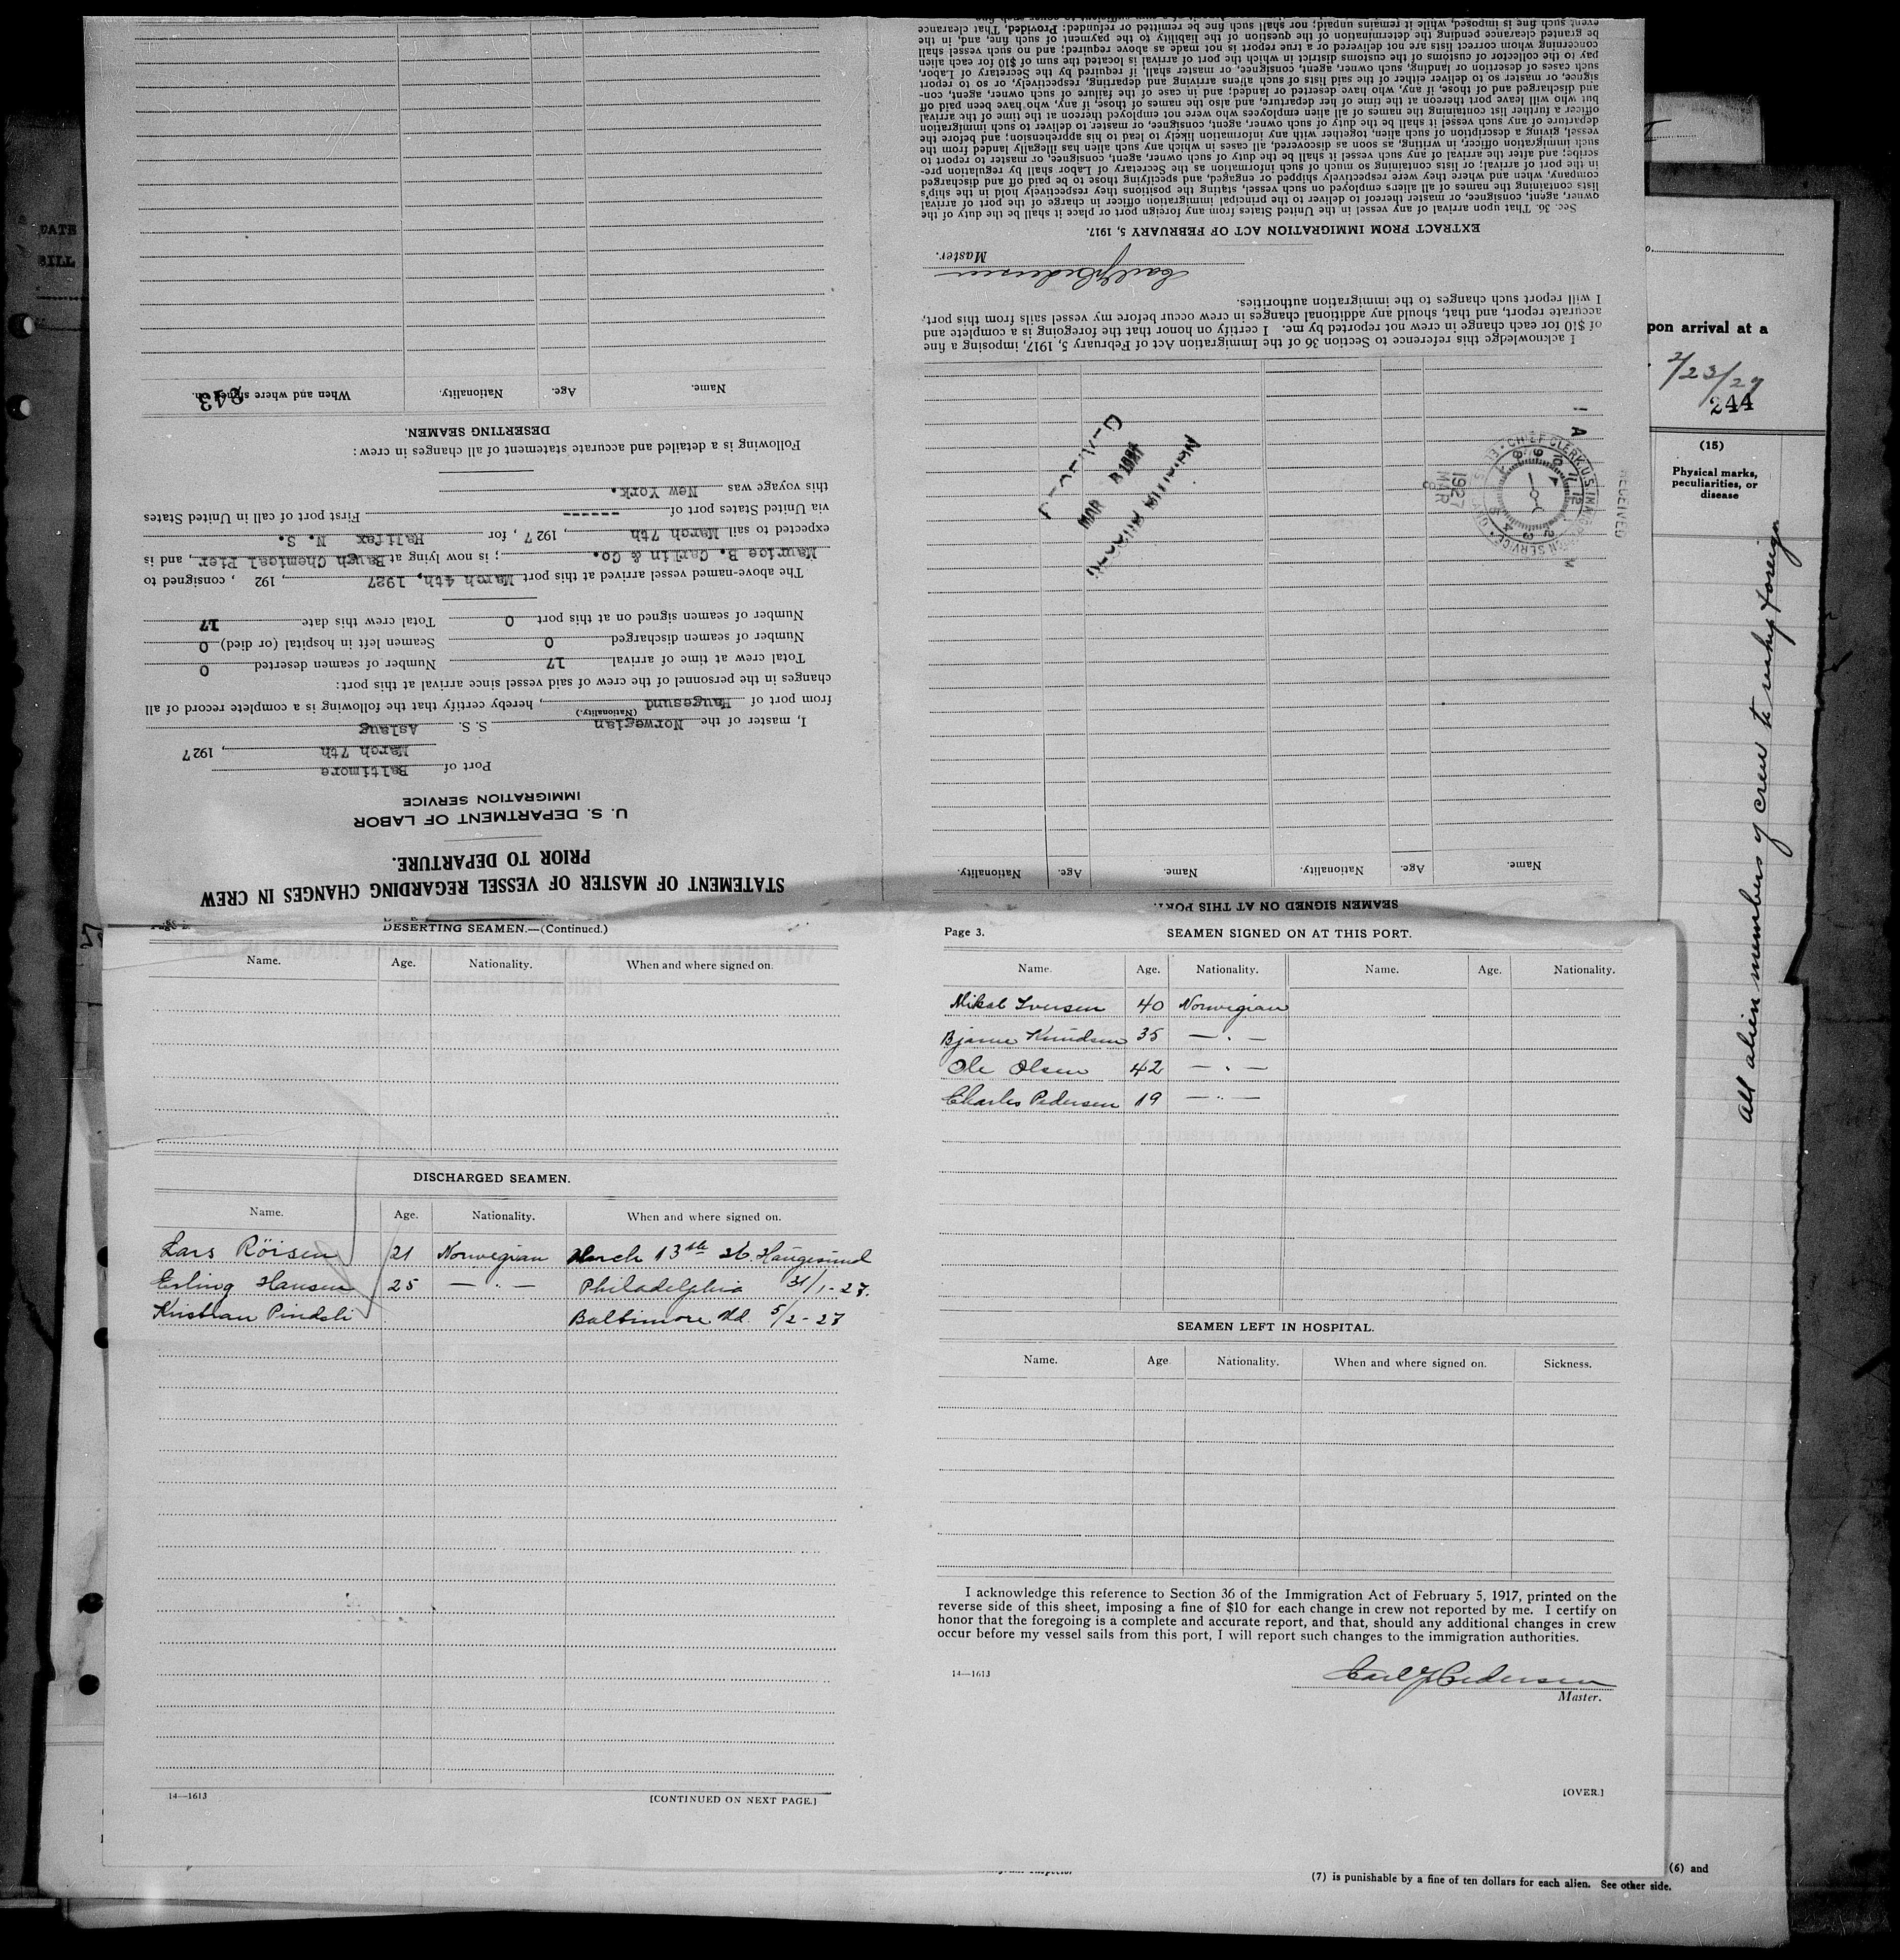 STATEMENT OF MASTER OF VESSEL REGARDING CHANGES IN CREW
PRIOR TO DEPARTURE.
U. S. DEPARTMENT OF LABOR
IMMIGRATION SERVICE
Port of Baltimore
March 7th, 1927
I, master of the Norwegian S. S. Aslaug
(Nationality.)
from port of Haugesund, hereby certify that the following is a complete record of all
changes in the personnel of the crew of said vessel since arrival at this port:
Total crew at time of arrival 17 Number of seamen deserted 0
Number of seamen discharged 0 Seamen left in hospital (or died) 0
Number of seamen signed on at this port 0 Total crew this date 17
The above-named vessel arrived at this port March 4th, 1927, 192 , consigned to
Maurice B. Carlin & Co. ; is now lying at Baugh Chemical Pier, and is
expected to sail March 7th, 1927, for Halifax N. S.
via United States port of ------ First port of call in United States
this voyage was New York.
Following is a detailed and accurate statement of all changes in crew:
DESERTING SEAMEN.
Name. Age. Nationality. When and where signed on.
243
SEAMEN SIGNED ON AT THIS PORT.
Name. Age. Nationality. Name. Age. Nationality.
RECEIVED
CHIEF CLERK U.S. IMMIGRATION SERVICE
1927
MAR
8
MAR 8 1927
I acknowledge this reference to Section 36 of the Immigration Act of February 5, 1917, imposing a fine
of $10 for each change in crew not reported by me. I certify on honor that the foregoing is a complete and
accurate report, and that, should any additional changes in crew occur before my vessel sails from this port,
I will report such changes to the immigration authorities.
Carl J Pedersen
Master.
EXTRACT FROM IMMIGRATION ACT OF FEBRUARY 5, 1917.
Sec. 36. That upon arrival of any vessel in the United States from any foreign port or place it shall be the duty of the
owner, agent, consignee, or master thereof to deliver to the principal immigration officer in charge of the port of arrival
lists containing the names of all aliens employed on such vessel, stating the positions they respectively hold in the ship's
company, when and where they were respectively shipped or engaged, and specifying those to be paid off and discharged
in the port of arrival; or lists containing so much of such information as the Secretary of Labor shall by regulation pre-
scribe; and after the arrival of any such vessel it shall be the duty of such owner, agent, consignee, or master to report to
such immigration officer, in writing, as soon as discovered, all cases in which any such alien has illegally landed from the
vessel, giving a description of such alien, together with any information likely to lead to his apprehension; and before the
departure of any such vessel it shall be the duty of such owner, agent, consignee, or master to deliver to such immigration
officer a further list containing the names of all alien employees who were not employed thereon at the time of the arrival
but who will leave port thereon at the time of her departure, and also the names of those, if any, who have been paid off
and discharged and of those, if any, who have deserted or landed; and in case of the failure of such owner, agent, con-
signee, or master so to deliver either of the said lists of such aliens arriving and departing, respectively, or so to report
such cases of desertion or landing, such owner, agent, consignee, or master shall, if required by the Secretary of Labor,
pay to the collector of customs of the customs district in which the port of arrival is located the sum of $10 for each alien
concerning whom correct lists are not delivered or a true report is not made as above required; and no such vessel shall
be granted clearance pending the determination of the question of the liability to the payment of such fine, and, in the
event such fine is imposed, while it remains unpaid; nor shall such fine be remitted or refunded: Provided, That clearance
DESERTING SEAMEN.—(Continued.)
Name. Age. Nationality. When and where signed on.
DISCHARGED SEAMEN.
Name. Age. Nationality. When and where signed on.
Lars Röisen 21 Norwegian March 13th 26. Haugesund
Erling Hansen 25 — " — Philadelphia 31/1-27.
Kristian Pindsli Baltimore Md. 5/2-27
14—1613 [CONTINUED ON NEXT PAGE.]
Page 3. SEAMEN SIGNED ON AT THIS PORT.
Name. Age. Nationality. Name. Age. Nationality.
Mikal Iversen 40 Norwegian
Bjarne Knudsen 35 — " —
Ole Olsen 42 — " —
Charles Pedersen 19 — " —
SEAMEN LEFT IN HOSPITAL.
Name. Age Nationality. When and where signed on. Sickness.
I acknowledge this reference to Section 36 of the Immigration Act of February 5, 1917, printed on the
reverse side of this sheet, imposing a fine of $10 for each change in crew not reported by me. I certify on
honor that the foregoing is a complete and accurate report, and that, should any additional changes in crew
occur before my vessel sails from this port, I will report such changes to the immigration authorities.
14—1613
Carl J Pedersen
Master.
[OVER.]
DATE
BILL
pon arrival at a
2/23/27
244
(15)
Physical marks,
peculiarities, or
disease
All alien members of crew to reship foreign
(6) and
(7) is punishable by a fine of ten dollars for each alien. See other side.